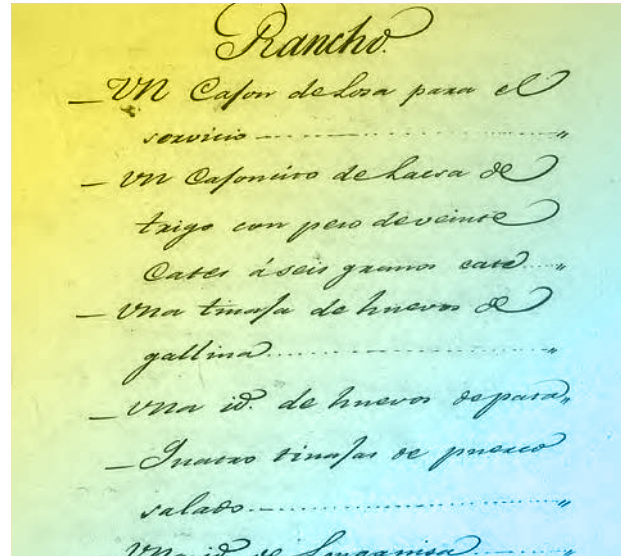 Rancho.
— Un Cajon de Losa para el
servicio — "
— Un Cajoncito de Lacsa de
trigo con peso de veinte
Cates á seis granos cate "
— Una tinaja de huevos de
gallina "
— Una id. de huevos de pata "
— Quatro tinajas de puerco
salado "
Una id. de Longanisa "